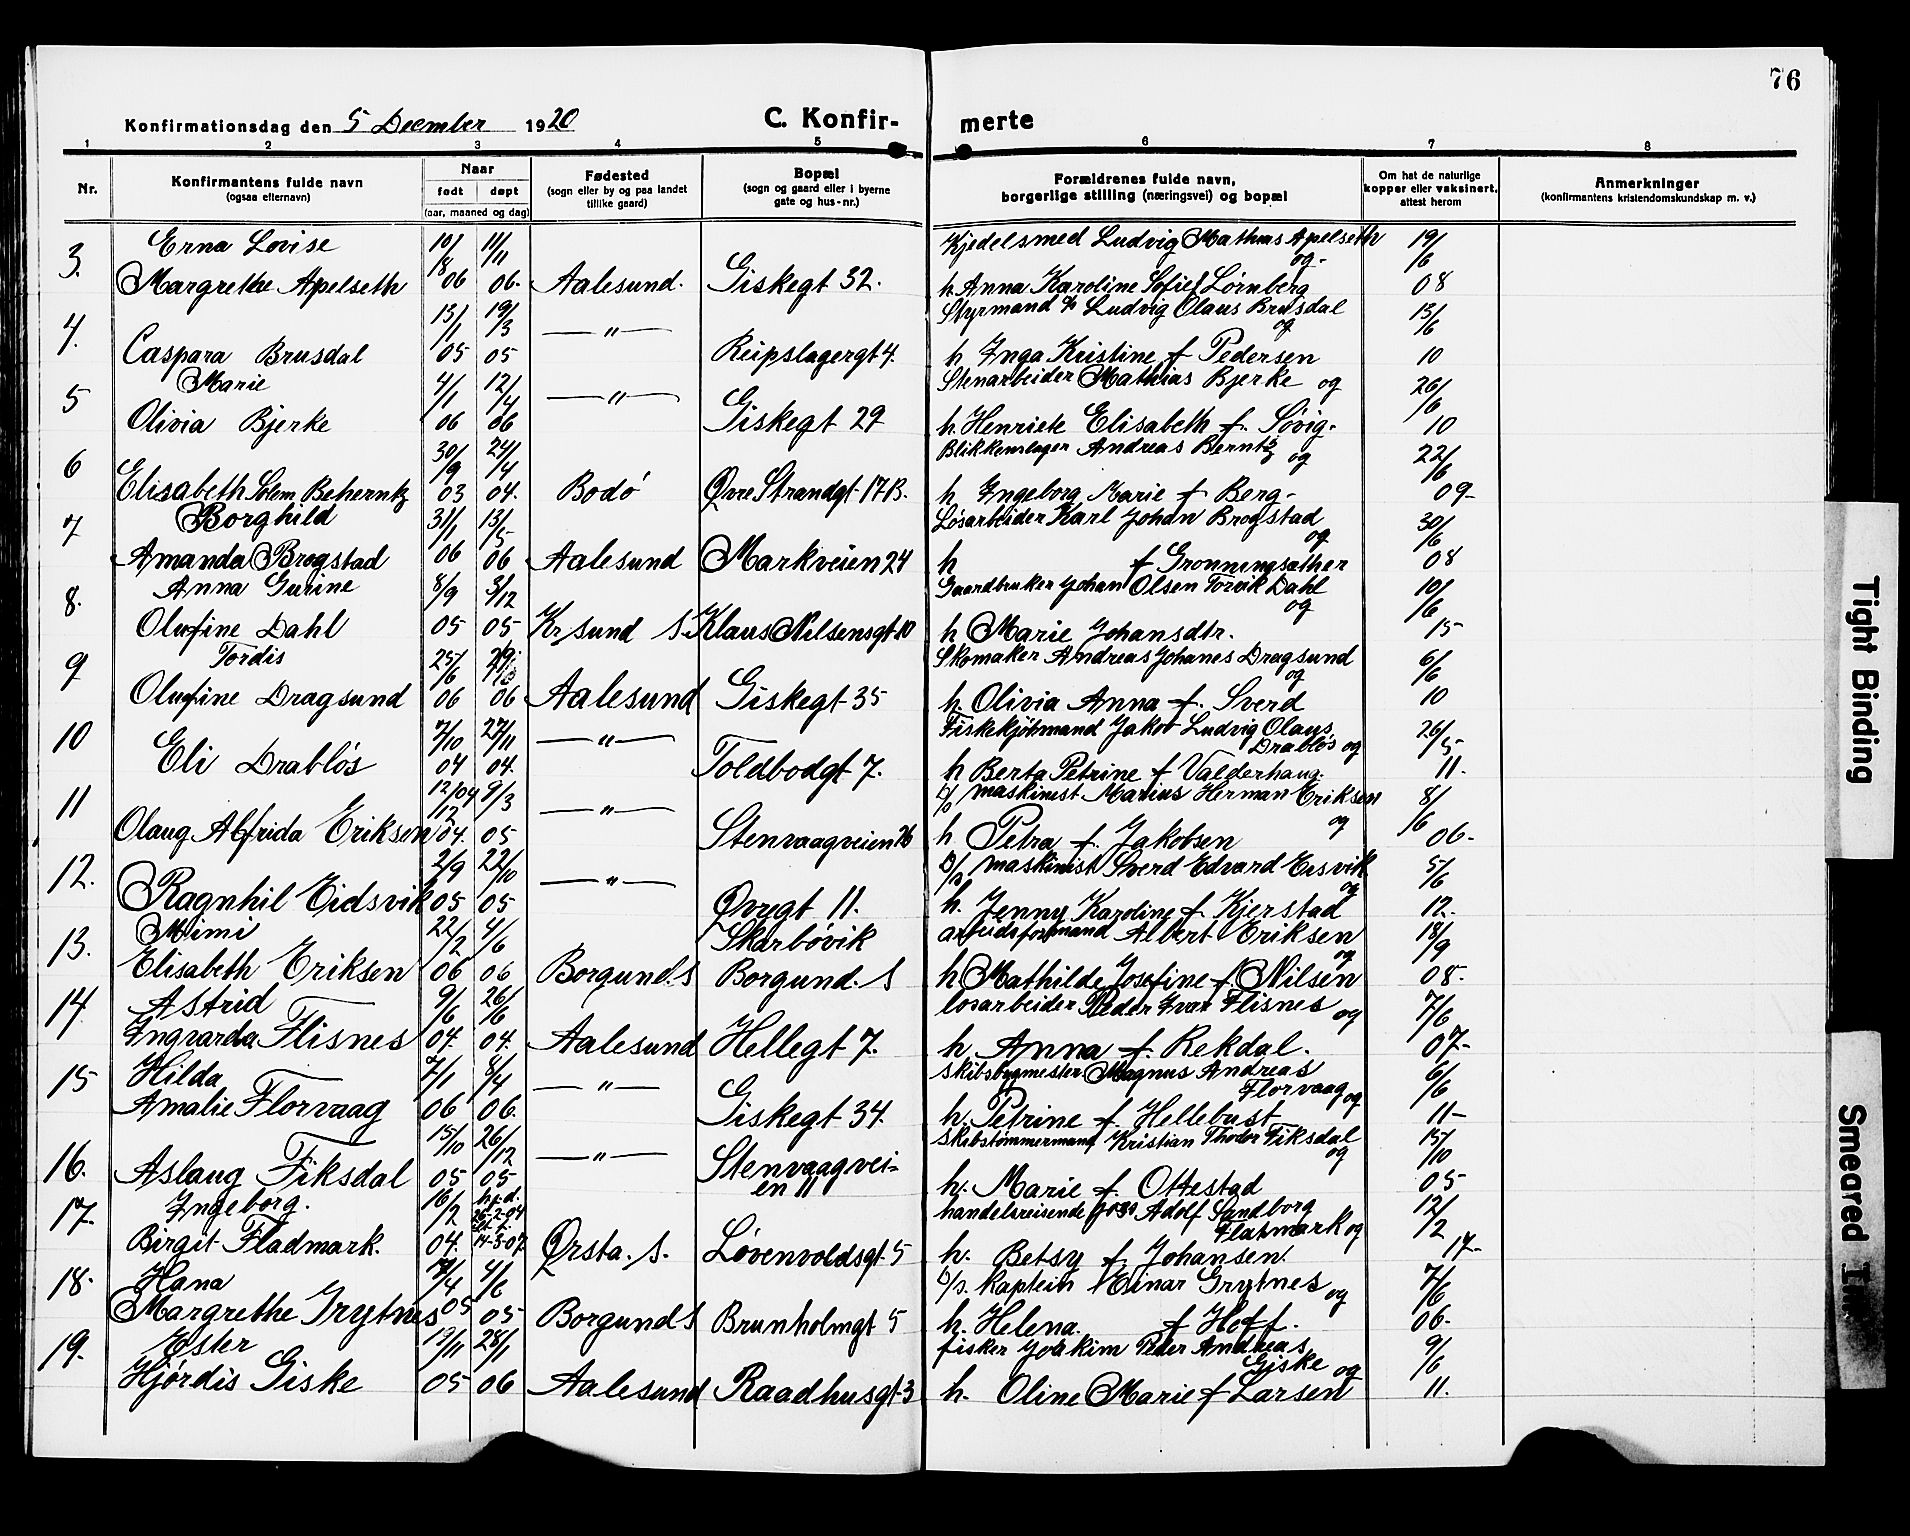 76
Konfirmationsdag den 5 December 1920
C. Konfirmerte
1 2 3 4 5 6 7 8
Nr.
Konfirmantens fulde navn
(ogsaa efternavn)
Naar
født døpt
(aar, maaned og dag)
Fødested
(sogn eller by og paa landet
tillike gaard)
Bopæl
(sogn og gaard eller i byerne
gate og hus-nr.)
Forældrenes fulde navn,
borgerlige stilling (næringsvei) og bopæl
Om hat de naturlige
kopper eller vaksinert,
attest herom
Anmerkninger
(konfirmantens kristendomskundskap m. v.)
3. Erna Lovise 10/18 11/11 Kjedelsmed Ludvig Mathias Apelseth og 19/6
Margrethe Apelseth 06 06. Aalesund. Giskegt 32. h. Anna Karoline Sofie f Lørnberg 08
4. 13/1 19/3 — " — Styrmand Ludvig Olaus Brusdal og 13/6
Caspara Brusdal 05 05 Reipslagergt 4. h Inga Kristine f Pedersen 10
5 Marie 4/1 12/4 — " — Stenarbeider Mathias Bjerke og 26/6
Olivia Bjerke 06 06 Giskegt 29 h. Henriete Elisabeth f. Søvig. 10
6 30/9 24/4 Blikkenslager Andreas Berntz og 22/6
Elisabeth Solem Beherntz 03 04. Bodö Øvre Strandgt 17B. h Ingeborg Marie f Berg. 09
7 Borghild 31/1 13/5 Løsarbeider Karl Johan Brogstad og 30/6
Amanda Brogstad 06 06 Aalesund Markveien 24 h f Gronningsæther 08
8. Anna Gurine 8/9 3/12 Gaardbruker Johan Olsen Torvik Dahl og 10/6
Olufine Dahl 05 05 Kr sund S. Klaus Nilsensgt 10 h Marie Johansdtr. 15
9 Tordis 25/6 Skomaker Andreas Johanes Dragsund og 6/6
Olufine Dragsund 06 06 Aalesund Giskegt 35 h. Olivia Anna f. Sverd 10
10 7/10 27/11 — " — Fiskekjøbmand Jakob Ludvig Olaus Drabløs og 26/5
Eli Drabløs 04 04. Toldbodgt 7. h Berta Petrine f Valderhaug. 11.
11 12/04 12 9/3 — " — D/s maskinist Marius Herman Eriksen og 8/6
Olaug Alfrida Eriksen 04. 05 Stenvaagveien 26 h Petra f. Jakobsen 06
12. 2/9 22/10 — " — D/s maskinist Sverd Edvard Eisvik og 5/6
Ragnhil Eidsvik 05 05 Øvregt 11. h. Jenny Karoline f. Kjerstad 12.
13. Mimi 22/2 4/6 Skarbövik arbeidsformand Albert Eriksen og 18/9
Elisabeth Eriksen 06 06 Borgund. S Borgund. S h Mathilde Josefine f Nilsen 08.
14. Astrid 9/6 26/6 losarbeider Peder Ivar Flisnes og 7/6
Ingvarda Flisnes 04. 04. Aalesund Hellegt 7. h. Anna f. Rekdal. 07
15 Hilda 7/1 8/4 — " — skibsbygmester Magnus Andreas Florvaag og 6/6
Amalie Florvaag 06 06. Giskegt 34. h. Petrine f. Hellebust 11
16. 15/10 26/12 — " — skibstømmermand Kristian Thodor Fiksdal og 15/10
Aslaug Fiksdal 05 05 Stenvaagveien 11 h. Marie f. Ottestad 05
17. Ingeborg. 16/2 hj.d. handelsreisende Adolf Sandborg Flatmark og 12/2
Birgit Fladmark. 04. 14-3-07 Ørsta. S. Løvenvoldsgt 5 h. Betsy f Johansen. 17
18. Hana 4/6 D/s. kaptein Einar Grytnes og 7/6
Margrethe Grytnes 05 05 Borgund S Brunholmgt 5 h. Helena. f Hoff. 06.
19. Ester 19/11 28/1 fisker Joakim Peter Andreas Giske og 9/6
Hjørdis Giske 05 06 Aalesund Raadhusgt 3 h. Oline Marie f Larsen 11.
Tight Binding
Smeared